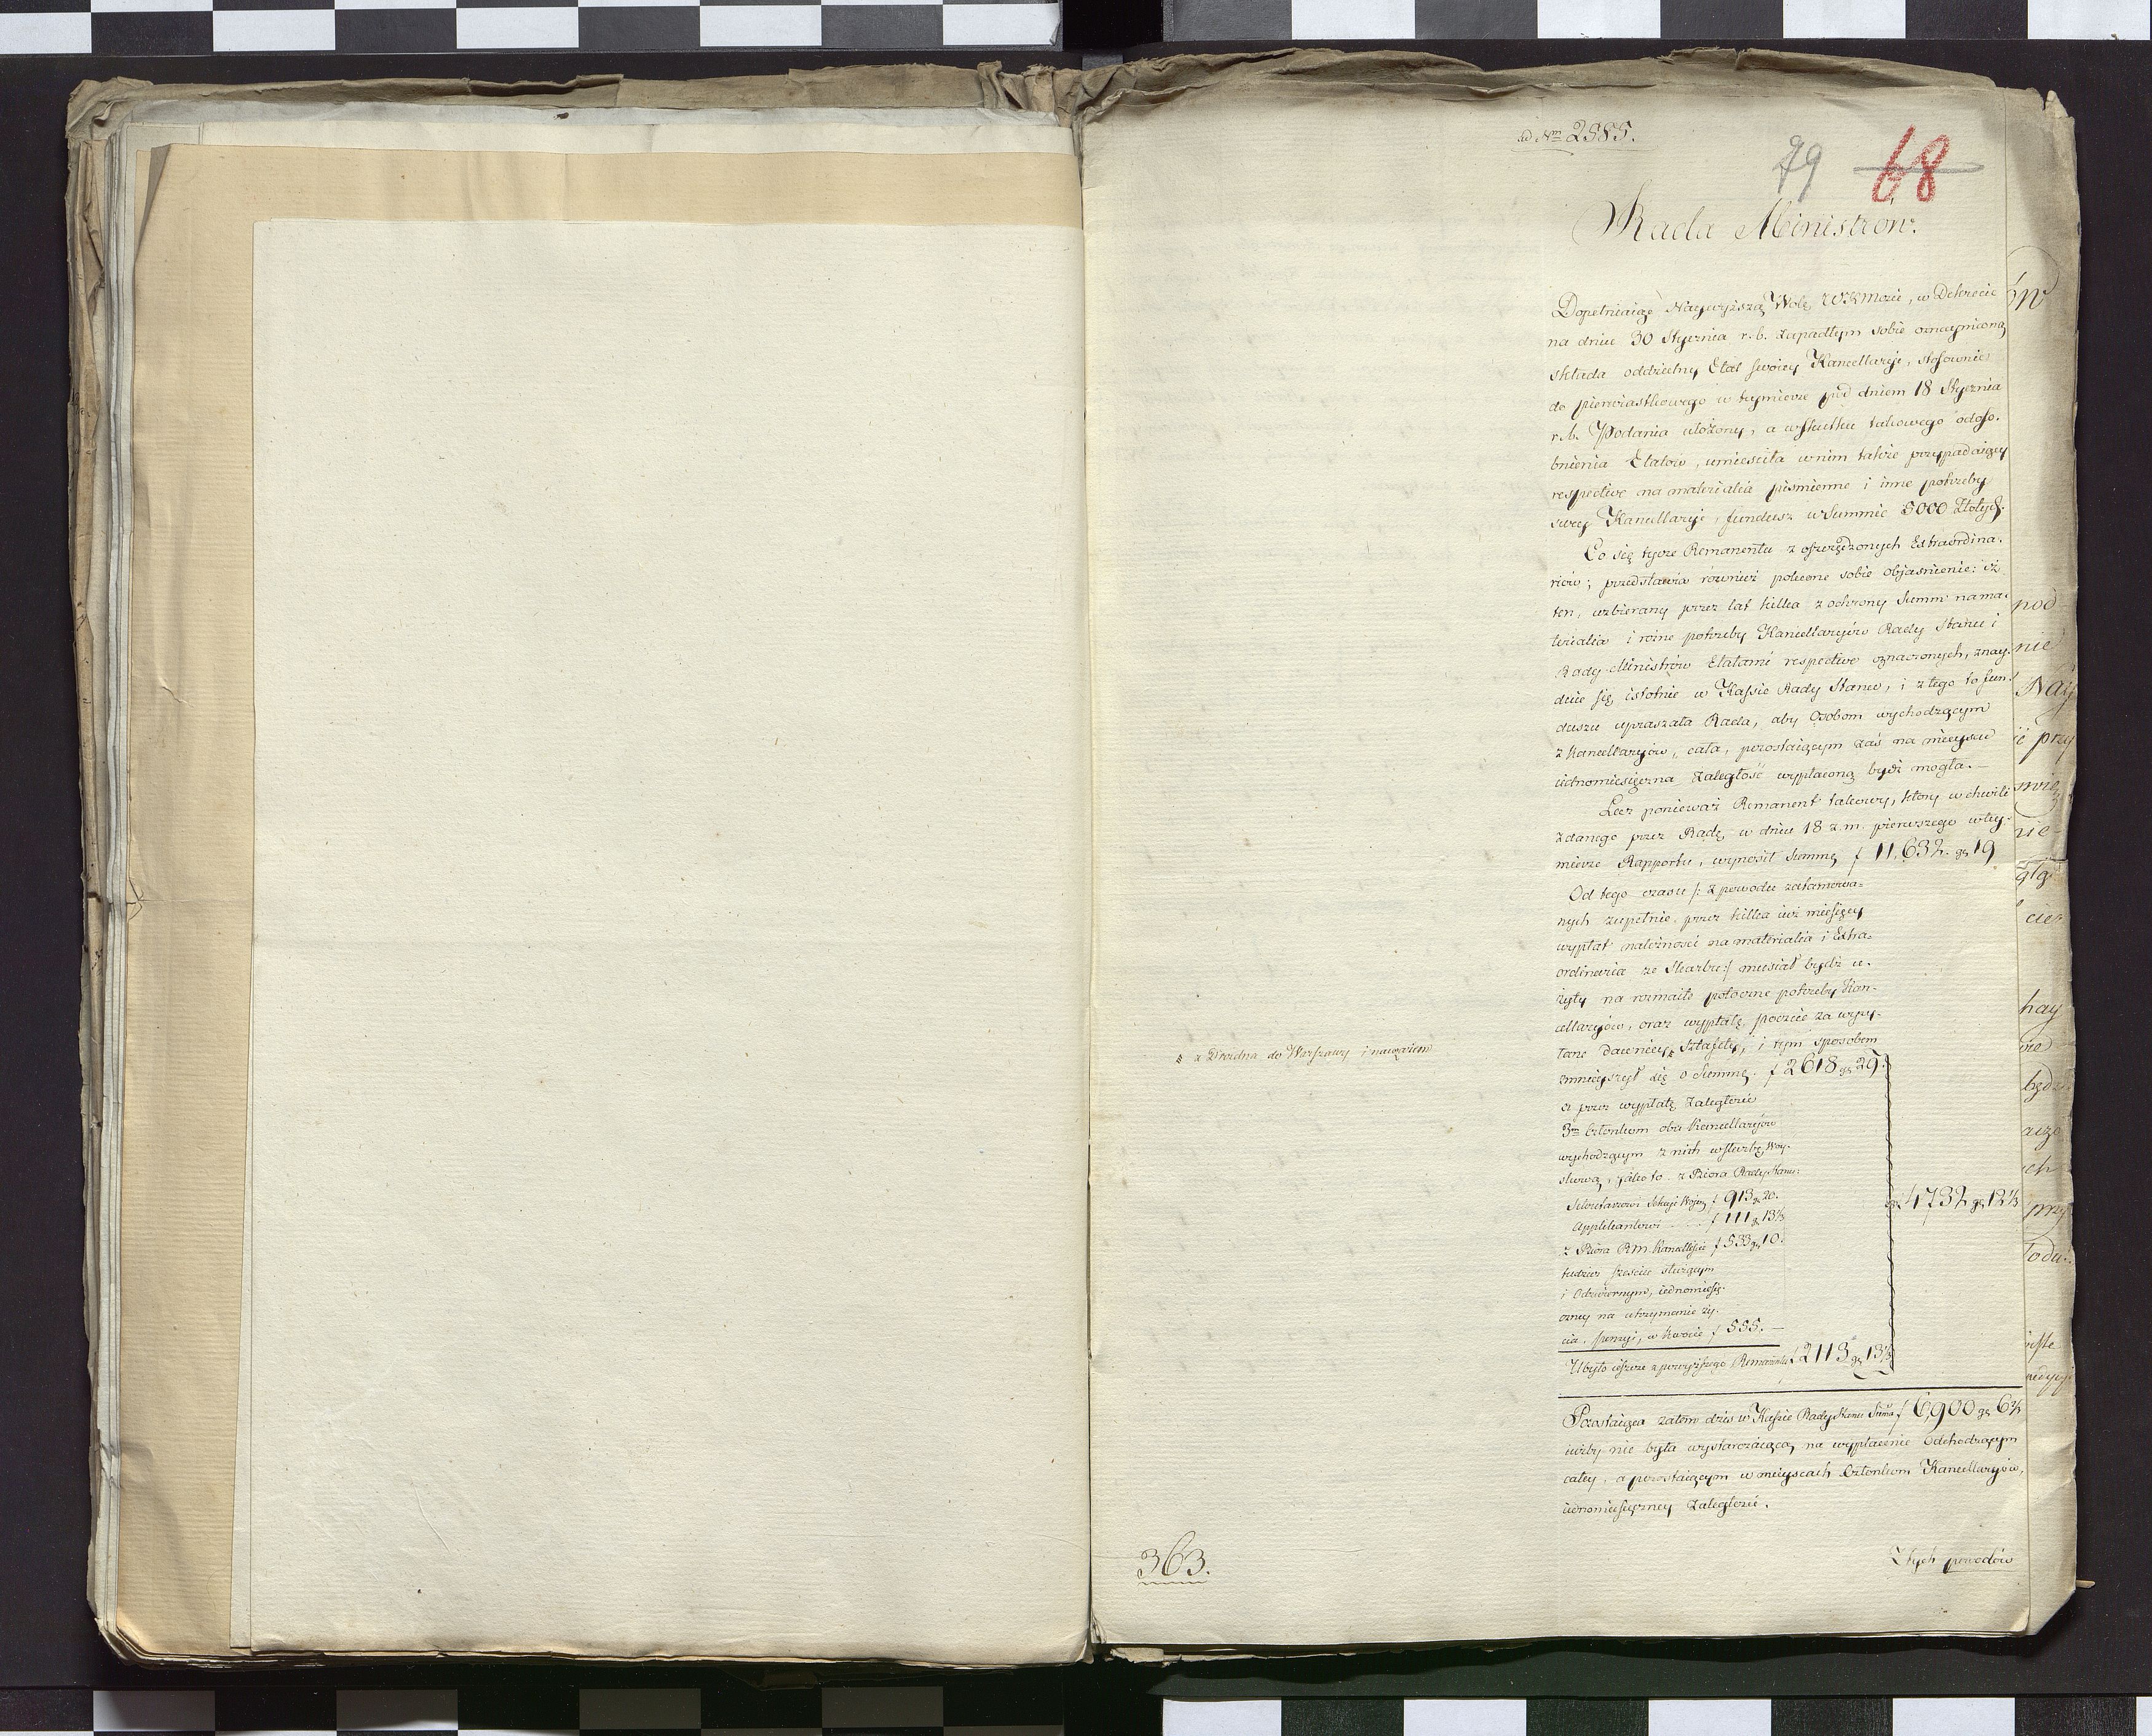 ad Nrm 2585.
79 68
Rada Ministrów.
Dopełniaiąc Naywyższą Wolę WKMości, w Dekrecie
na dniu 30 Stycznia r.b. zapadłym sobie oznaymioną
składa oddzielny Etat swoiey Kancellaryi, stosownie
do pierwiastkowego w teymierze pod dniem 18 Stycznia
r.b. Podania ułożony, a wskutku takowego odoso-
bnienia Etatów, umieściła wnim także przypadaiący
respective na materialia piśmienne i inne potrzeby
swey Kancellaryi, fundusz w Summie 5000 Złotych.
Co się tycze Remanentu z oszczędzonych Extraordina-
riów; przedstawia również polecone sobie objaśnienie: iż
ten, uzbierany przez lat kilka z ochrony Summ na ma-
terialia i różne potrzeby Kancellaryiów Rady Stanu i
Rady Ministrów Etatami respective oznaczonych, znay-
duie się istotnie w Kassie Rady Stanu, i z tego to fun-
duszu upraszała Rada, aby Osobom wychodzącym
z Kancellaryiów, cała, pozostaiącym zaś na mieyscu
iednomiesięczna zaległość wypłaconą bydź mogła.—
Lecz ponieważ Remanent takowy, który w chwili
zdanego przez Radę, w dniu 18 z.m. pierwszego wtey-
mierze Rapportu, wynosił Summę f 11,632. gr 19
Od tego czasu /: z powodu zatamowa-
nych zupełnie przez kilka iuż miesięcy
wypłat należności na materialia i Extra-
ordinaria ze Skarbu:/ musiał bydź u-
żyty na rozmaite potoczne potrzeby Kan-
cellaryiów, oraz wypłatę poczcie za wysy-
łane dawniey # sztafety, i tym sposobem
# z Drezdna do Warszawy i nawzaiem
zmnieyszył się o Summę. f 2618 gr 29.
a przez wypłatę zaległości
3m Członkom obu Kancellaryiów
wychodzącym z nich w służbę Woy-
skową, iako to z Biora Rady Stanu:
Sekretarzowi Sekcyi Woyny f 913 gr 20.
Applikantowi . . . . f 111 gr 13⅓
z Biora R.M. Kancelliście f 533 gr 10.
tudzież sześciu służącym
i Odźwiernym, iednomiesię-
czney na utrzymanie ży-
cia, pensyi, w kwocie f 555. —
Ubyło ieszcze z powyższego Remanentu f 2113 gr 13⅓
f 4732 gr 12⅓
Pozostaiąca zatem dziś w Kassie Rady Stanu Summa f 6,900 gr 6⅔
iużby nie była wystarczaiącą na wypłacenie Odchodzącym
całey, a pozostaiącym w mieyscach Członkom Kancellaryiów,
iednomiesięczney zaległości.
363.
Z tych powodów